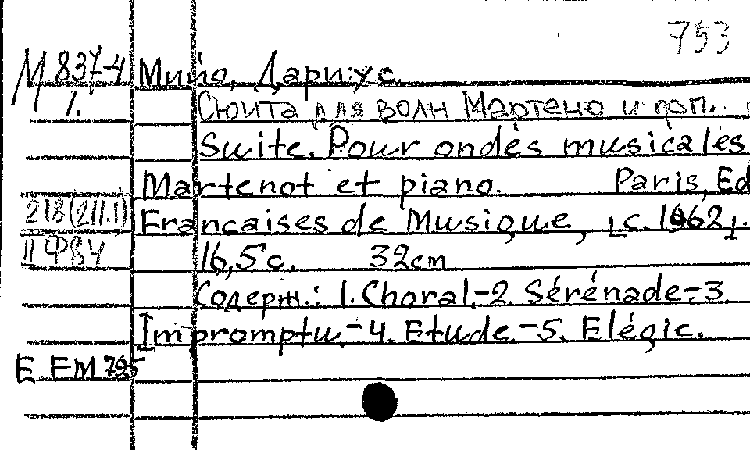 753
М 837-4 Мийо, Дариус.
1. Сюита для волн Мартено и фоп..
Suite. Pour ondes musicales
Martenot et piano. Paris, Ed
218(211.1) Francaises de Musique, [c. 1962].
II Ф84 16,5 с. 32cm
Содерж.: 1. Choral.-2. Sérénade.-3
Impromptu.-4. Etude.-5. Elégie.
E EM 795